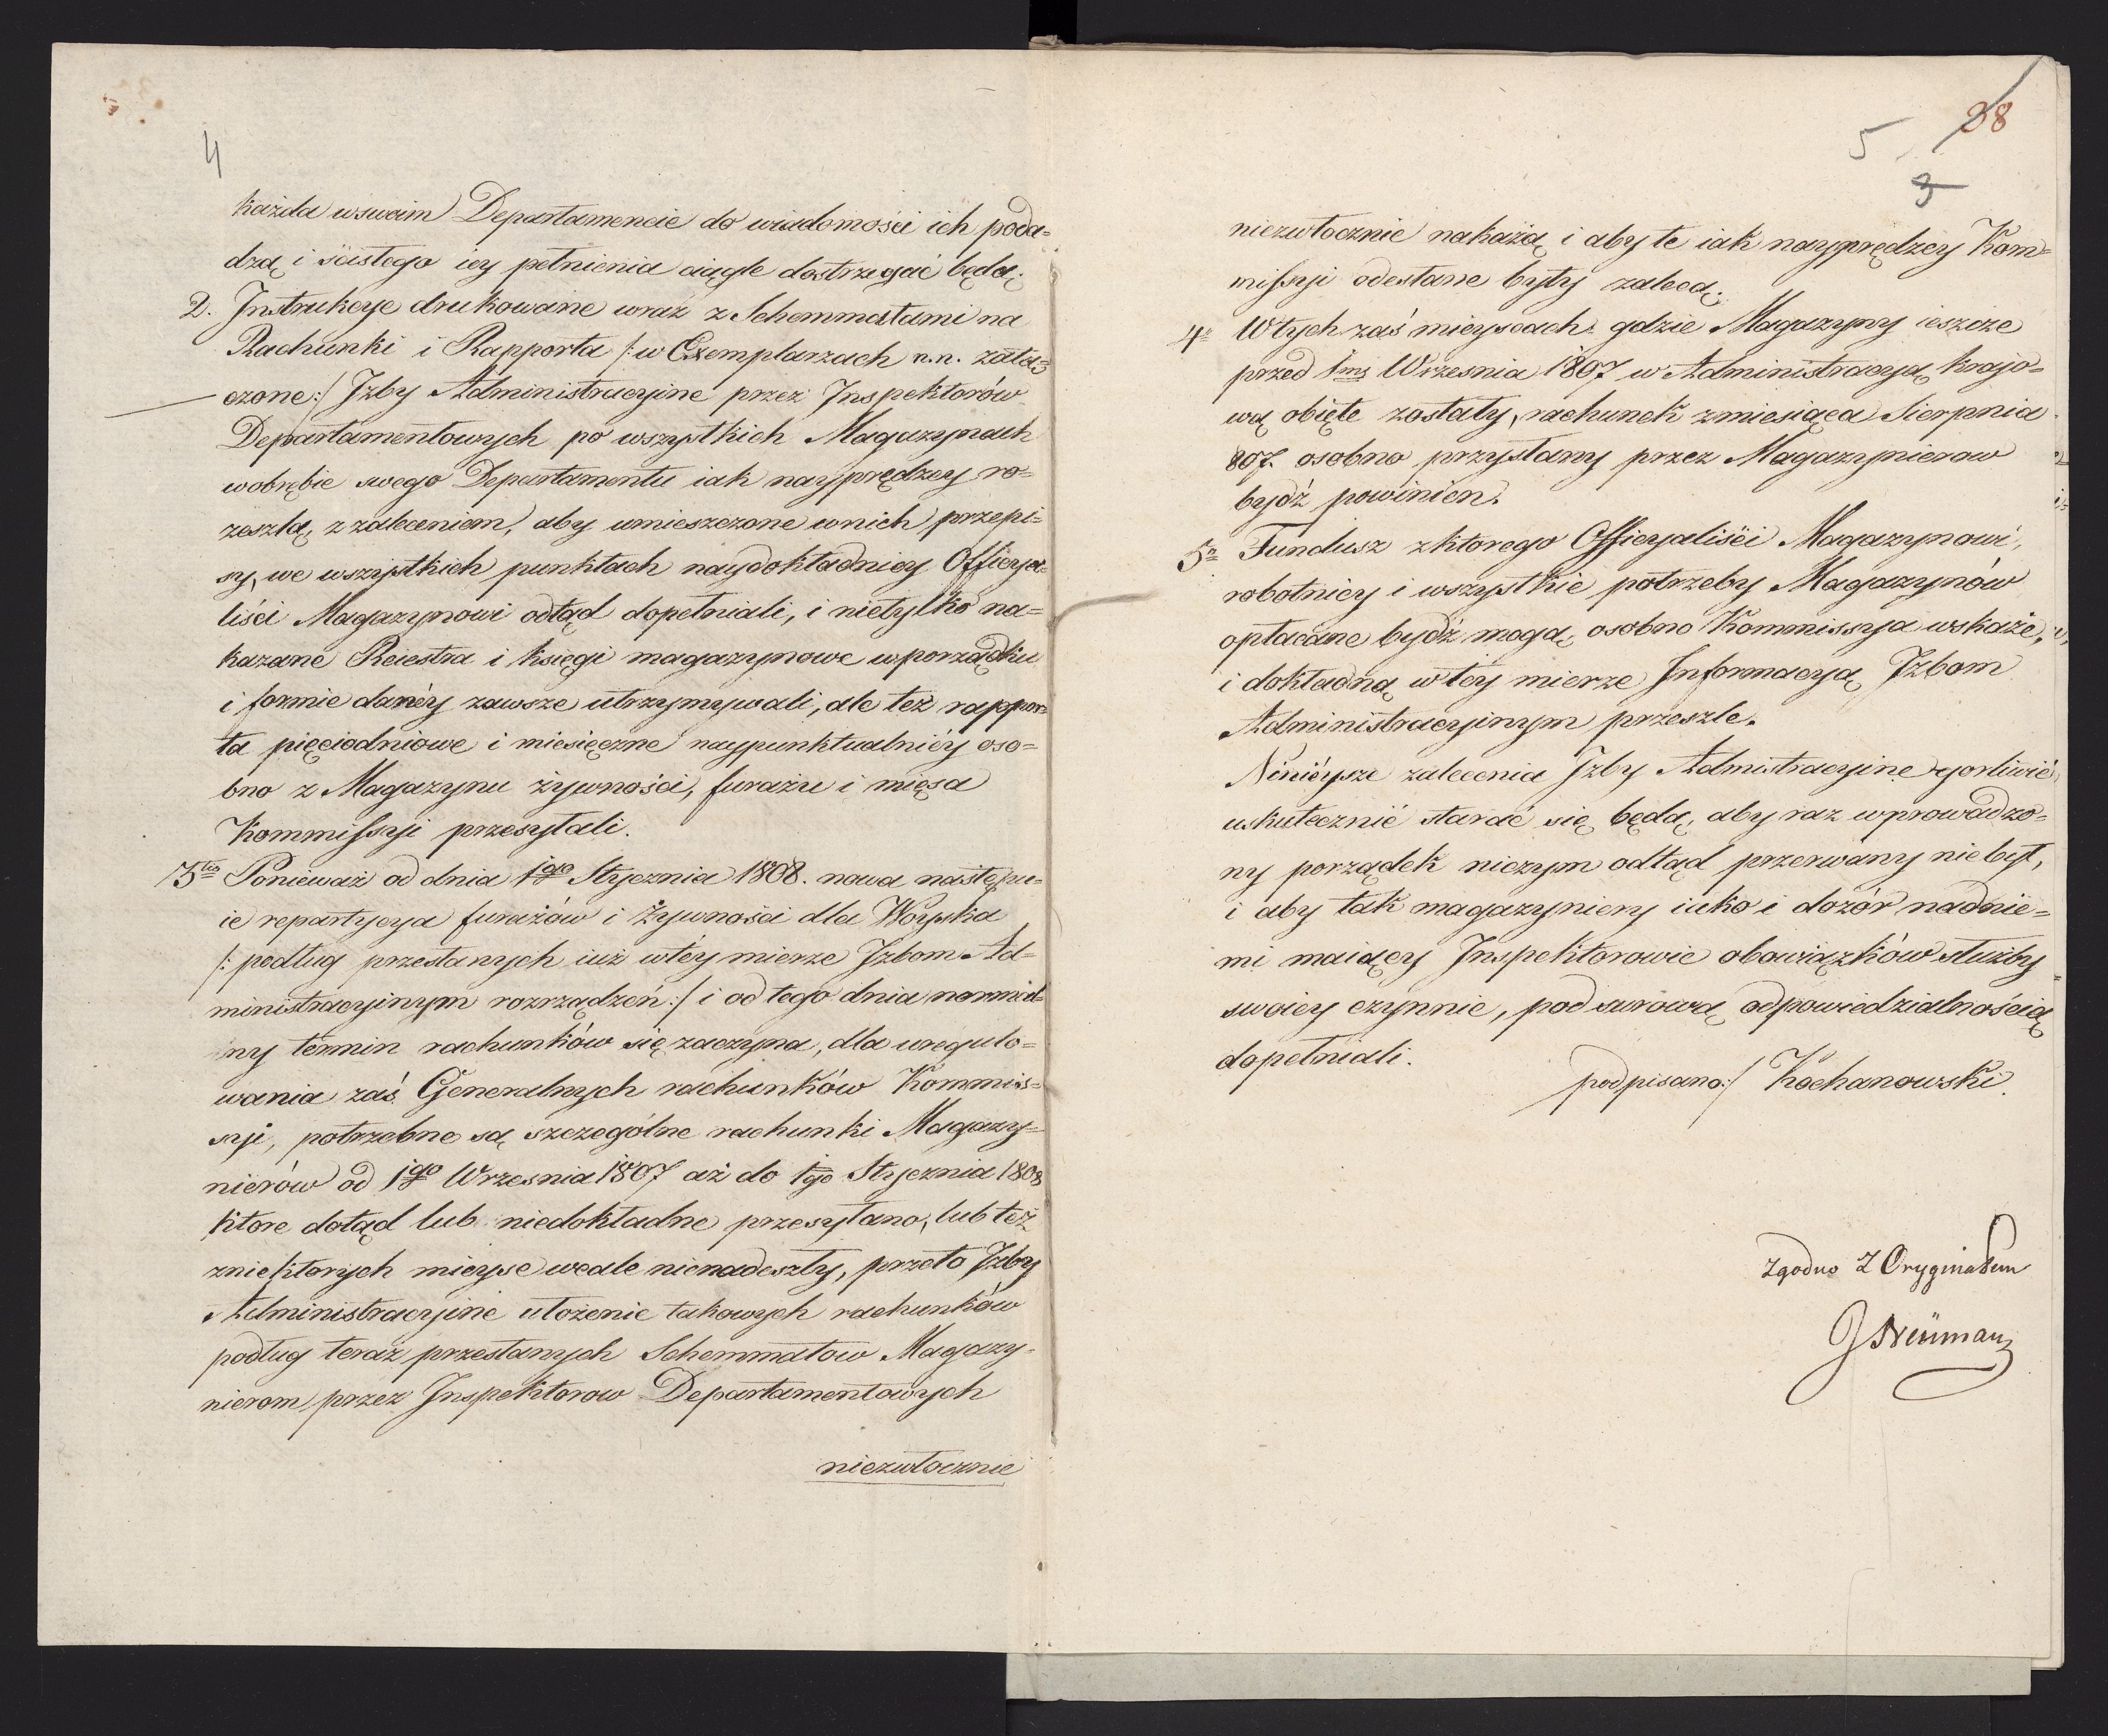 4
każda w swoim Departamencie do wiadomości ich poda=
dzą i ścisłego iey pełnienia ciągle dostrzegać będą.
2. Instrukcye drukowane wraz z Schemmatami na
Rachunki i Rapporta /: w Exemplarzach n.n. załą=
czone :/ Izby Administracyine przez Inspektorów
Departamentowych po wszystkich Magazynach
w obrębie swego Departamentu iak nayprędzey ro=
zeszlą, z zaleceniem, aby umieszczone w nich przepi=
sy, we wszystkich punktach naydokładniey Officya=
liści Magazynowi odtąd dopełniali, i nietylko na=
kazane Reiestra i księgi magazynowe w porządku
i formie danéy zawsze utrzymywali, ale też rappor=
ta pięciodniowe i miesięczne naypunktualniéy oso=
bno z Magazynu żywności, furażu i mięsa
Kommissyi przesyłali.
3tio Ponieważ od dnia 1go Stycznia 1808. nowa następu=
ie repartycya furażów i Żywności dla Woyska
/: podług przesłanych iuż w téy mierze Izbom Ad=
ministracyinym rozrządzeń :/ i od tego dnia normal=
ny termin rachunków się zaczyna, dla uregulo=
wania zaś Generalnych rachunków Kommis=
syi, potrzebne są szczególne rachunki Magazy=
nierów od 1go Wrzesnia 1807 aż do 1go Stycznia 1808
ktore dotąd lub niedokładne przesyłano, lub też
z niektorych mieysc wcale nienadeszły, przeto Izby
Administracyine ułożenie takowych rachunków
podług teraz przesłanych Schemmatow Magazy=
nierom przez Inspektorow Departamentowych
niezwłocznie
38
5
3
niezwłocznie nakażą i aby te iak nayprędzey Kom=
missyi odesłane były zalecą.
4o W tych zaś mieyscach gdzie Magazyny ieszcze
przed 1ms Wrzesnia 1807 w Administracyą krajo=
wą obięte zostały, rachunek z miesiąca Sierpnia
807. osobno przysłany przez Magazynierow
bydź powinien.
5o Fundusz z ktorego Officyaliści Magazynowi,
robotnicy i wszystkie potrzeby Magazynów
opłacane bydź mogą, osobno Kommissya wskaże,
i dokładną w téy mierze Informacyą Izbom
Administracyinym przeszle.
Ninieysze zalecenia Izby Admistracyine gorliwie
uskutecznić starać się będą, aby raz wprowadzo=
ny porządek niczym odtąd przerwany nie był,
i aby tak magazyniery iako i dozór nad nie=
mi maiący Inspektorowie obowiązków służby
swoiey czynnie, pod surową odpowiedzialnością
dopełniali.
podpisano :/ Kochanowski.
Zgodno Z Oryginałem
J Neümann